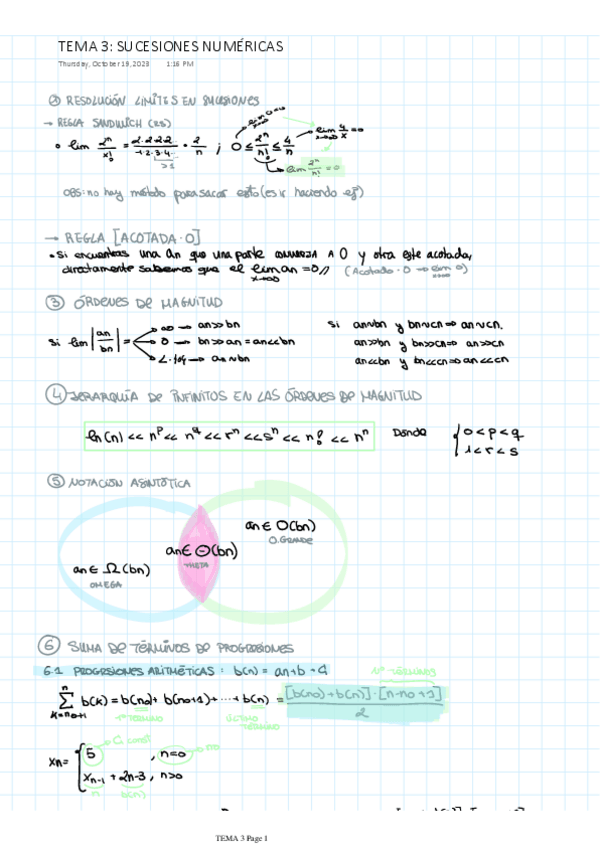 TEMA 3: SUCESIONES NUMÉRICAS
Thursday, October 19, 2023 1:16 PM
② RESOLUCIÓN LÍMITES EN SUCESIONES
→ REGLA SANDWICH (RS)
• lim 2^n/x! = 2·2·2·2/1·2·3·4... · 2/n ; 0 ≤ 2^n/n! ≤ 4/n
lim 4/x = 0
x→∞
>1
lim 2^n/n! = 0
OBS: no hay método para sacar esto (es ir haciendo ej)
→ REGLA [ACOTADA·0]
• Si encuentras una an que una parte CONVERJA A 0 y otra este acotada,
directamente sabemos que el lim an = 0// (Acotado·0 → lim 0)
x→∞
③ ÓRDENES DE MAGNITUD
Si lim |an/bn| =
∞ → an>>bn
0 → bn>>an = an<<bn
→ an∼bn
Si an∼bn y bn∼cn ⇒ an∼cn.
an>>bn y bn>>cn ⇒ an>>cn
an<<bn y bn<<cn ⇒ an<<cn
④ JERARQUÍA DE INFINITOS EN LAS ÓRDENES DE MAGNITUD
ln(n) << n^p << n^q << r^n << s^n << n! << n^n Donde { 0<p<q
1<r<s
⑤ NOTACIÓN ASINTÓTICA
an ∈ O(bn)
O.GRANDE
an ∈ Θ(bn)
THETA
an ∈ Ω(bn)
OMEGA
⑥ SUMA DE TÉRMINOS DE PROGRESIONES
6.1 PROGRESIONES ARITMÉTICAS: b(n) = an+b → G
nº TÉRMINOS
n
∑ b(k) = b(n0) + b(n0+1) + ··· + b(n) = [b(n0)+b(n)]·[n-n0+1] / 2
k=n0+1
1º TÉRMINO ÚLTIMO TÉRMINO
Xn = { 5 , n=0
n0
Xn-1 + 2n-3 , n>0
b(n)
TEMA 3 Page 1